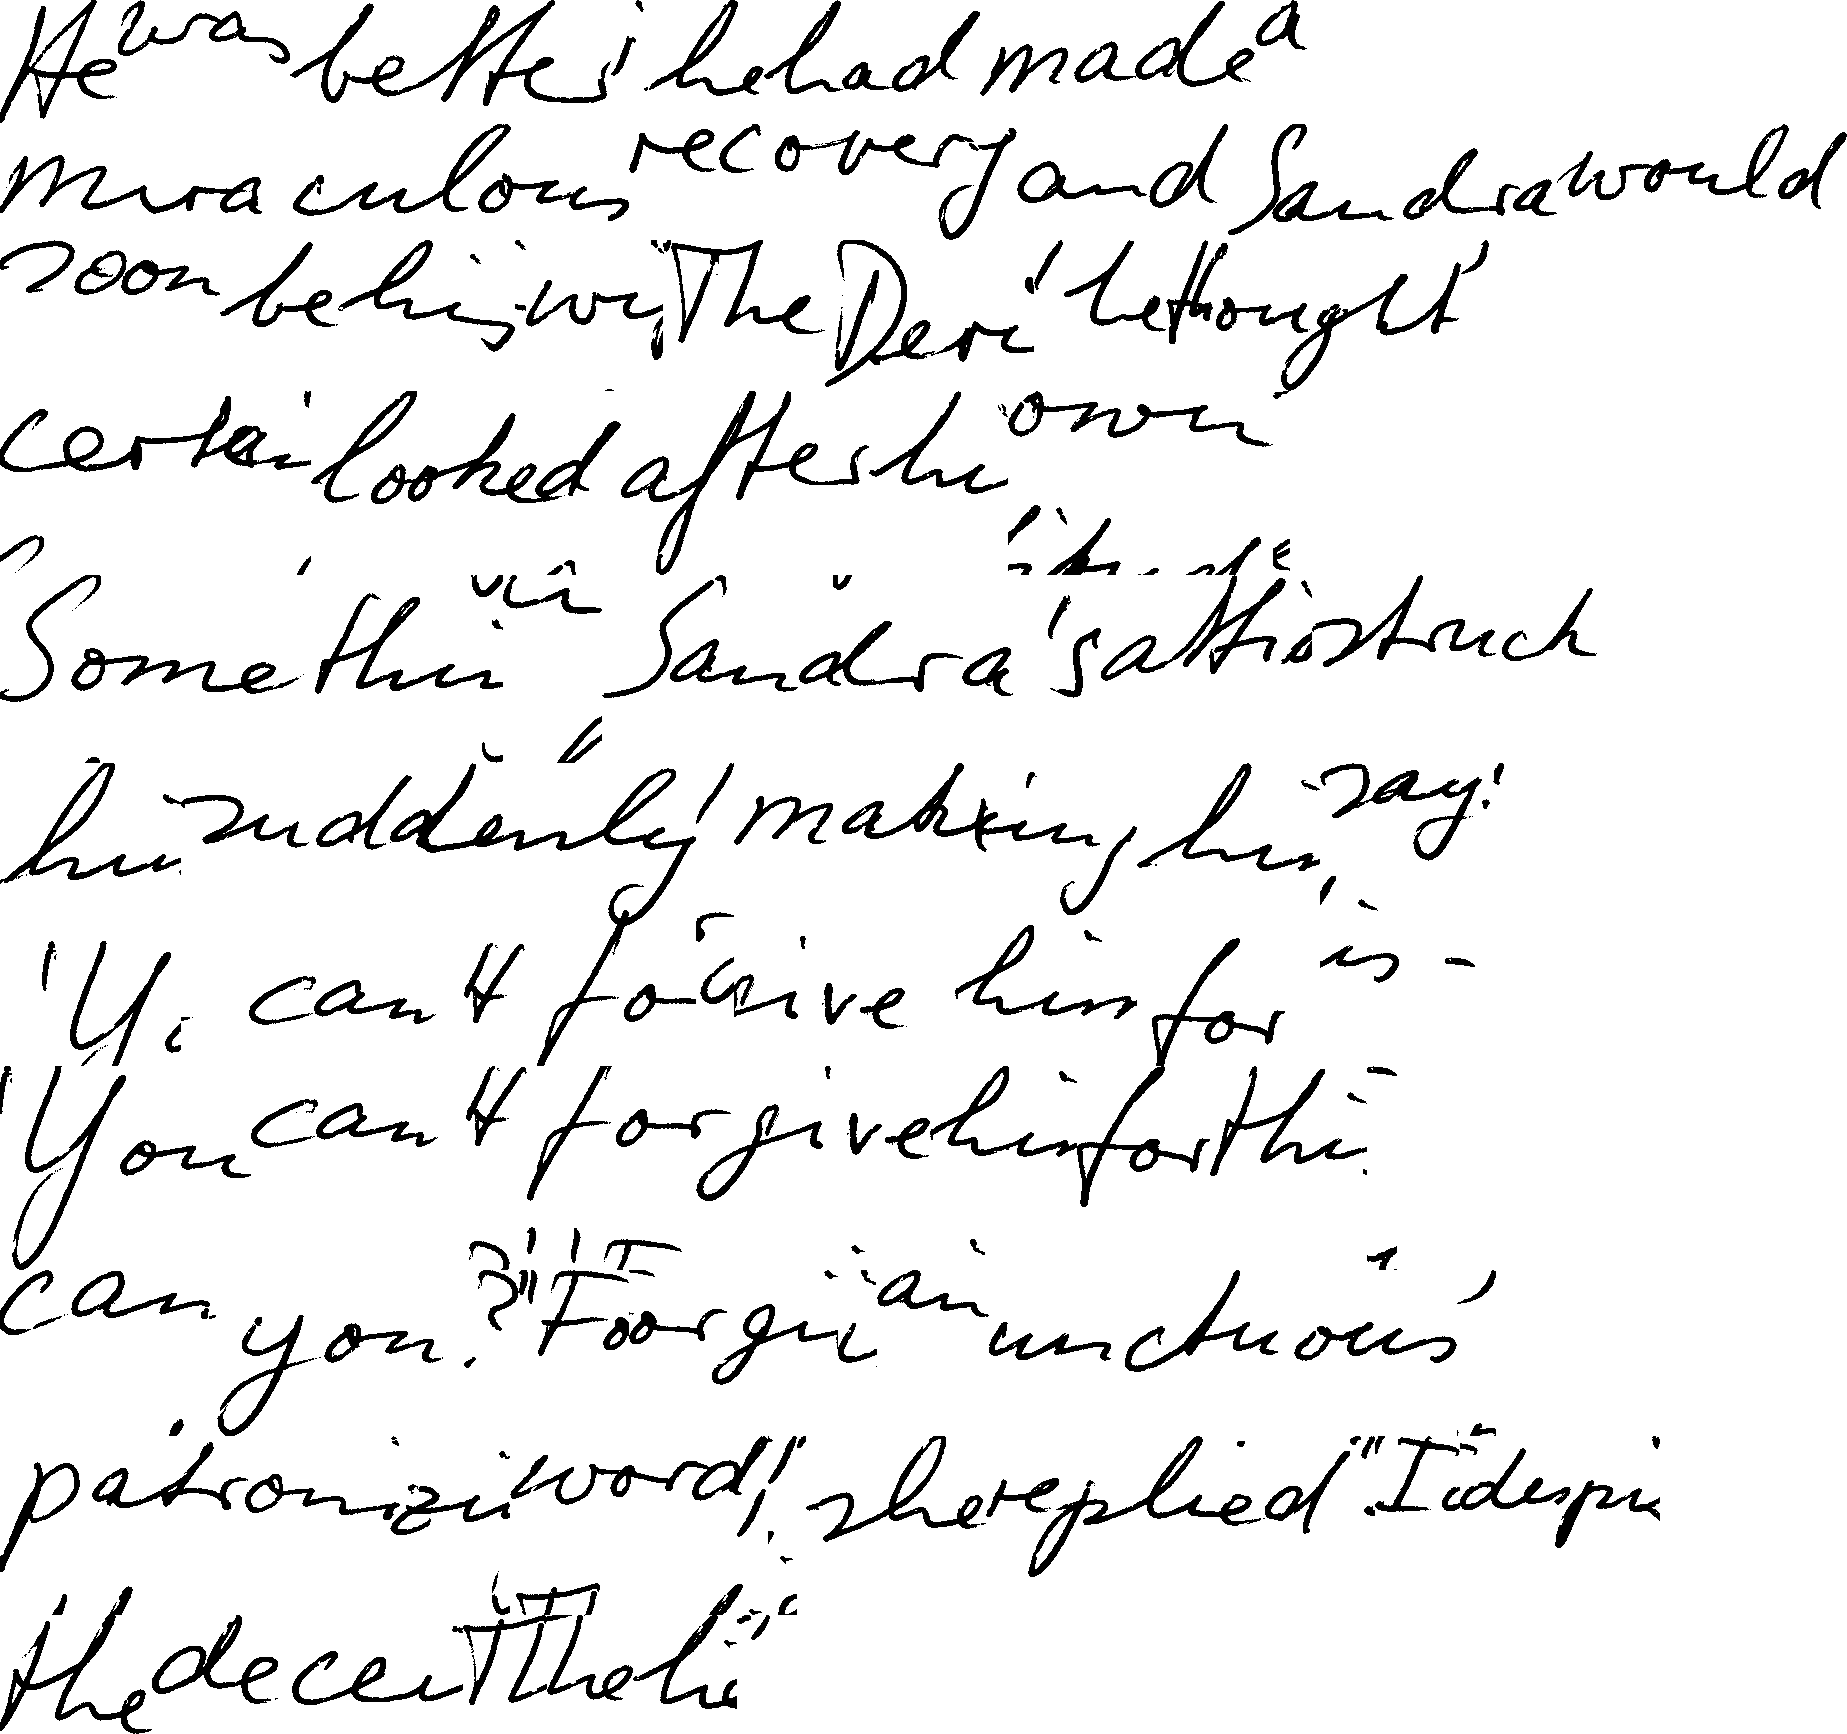 He was better; he had made a
miraculous recovery and Sandra would
soon be his wife. The Devil, he thought,
certainly looked after his own.
Something in Sandra's attitude struck
him suddenly, making him say:
"You can't forgive him for this -
"You can't forgive him for this
can you?" "Forgive is an unctuous,
patronizing word," she replied. "I despise
the deceit. The lie